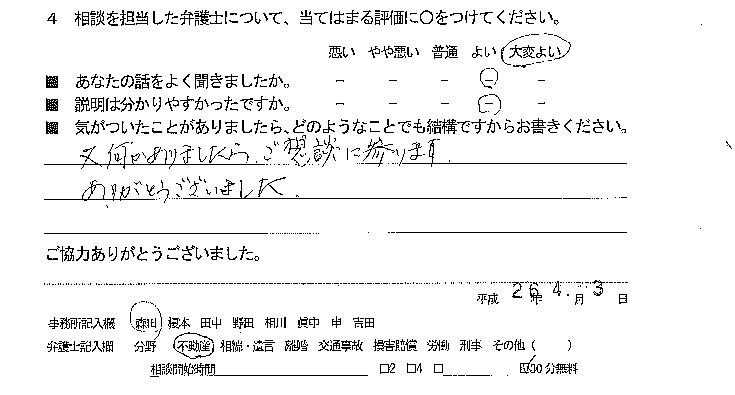 4 相談を担当した弁護士について、当てはまる評価に○をつけてください。
悪い やや悪い 普通 よい 大変よい
■ あなたの話をよく聞きましたか。 － － － － －
■ 説明は分かりやすかったですか。 － － － － －
■ 気がついたことがありましたら、どのようなことでも結構ですからお書きください。
又何かありましたら、ご想談に参ります.
ありがとうございました.
ご協力ありがとうございました。
平成 26年 4.月 3 日
事務所記入欄 森川 榎本 田中 野田 相川 眞中 申 吉田
弁護士記入欄 分野 不動産 相続・遺言 離婚 交通事故 損害賠償 労働 刑事 その他( )
相談開始時間 □2 □4 □ 30分無料